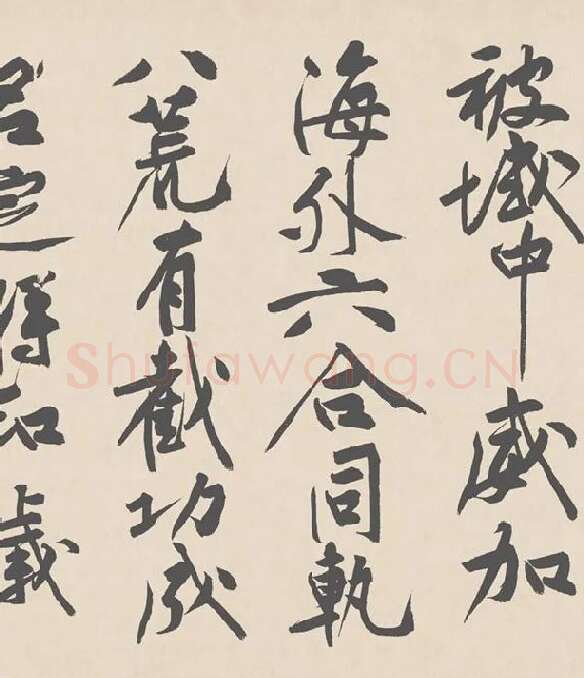 被域中威加
海外六合同軌
八荒有截功成
名定得
Shufawang.CN